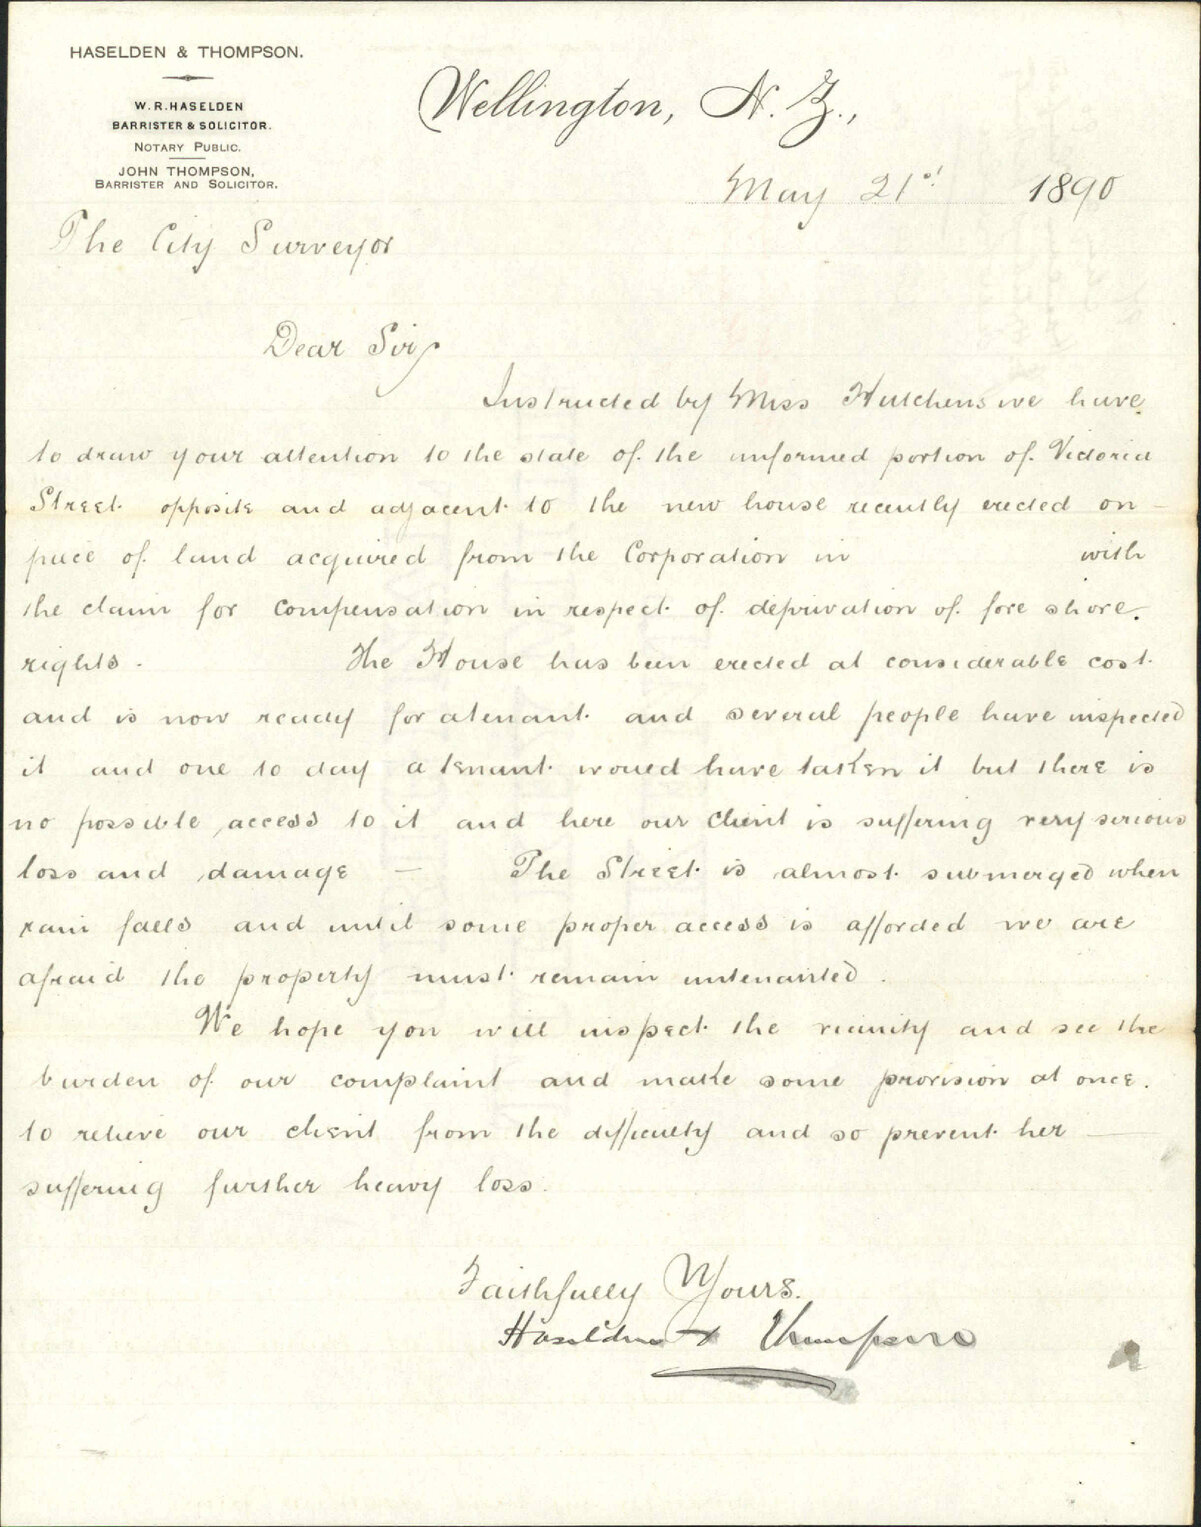 HASELDEN & THOMPSON.
W. R. HASELDEN
BARRISTER & SOLICITOR.
NOTARY PUBLIC.
JOHN THOMPSON,
BARRISTER AND SOLICITOR.
Wellington, N. Z.,
May 21st 1890
The City Surveyor
Dear Sir,
Instructed by Miss Hutchens we have
to draw your attention to the state of the unformed portion of Victoria
Street opposite and adjacent to the new house recently erected on —
piece of land acquired from the Corporation in with
the claim for compensation in respect of deprivation of fore shore.
rights. The House has been erected at considerable cost
and is now ready for a tenant and several people have inspected
it and one to day a tenant would have taken it but there is
no possible access to it and here our client is suffering very serious
loss and damage — The Street is almost submerged when
rain falls and until some proper access is afforded we are
afraid the property must remain untenanted.
We hope you will inspect the vicinity and see the
burden of our complaint and make some provision at once.
to relieve our client from the difficulty and so prevent her —
suffering further heavy loss.
Faithfully Yours.
Haselden & Thompson